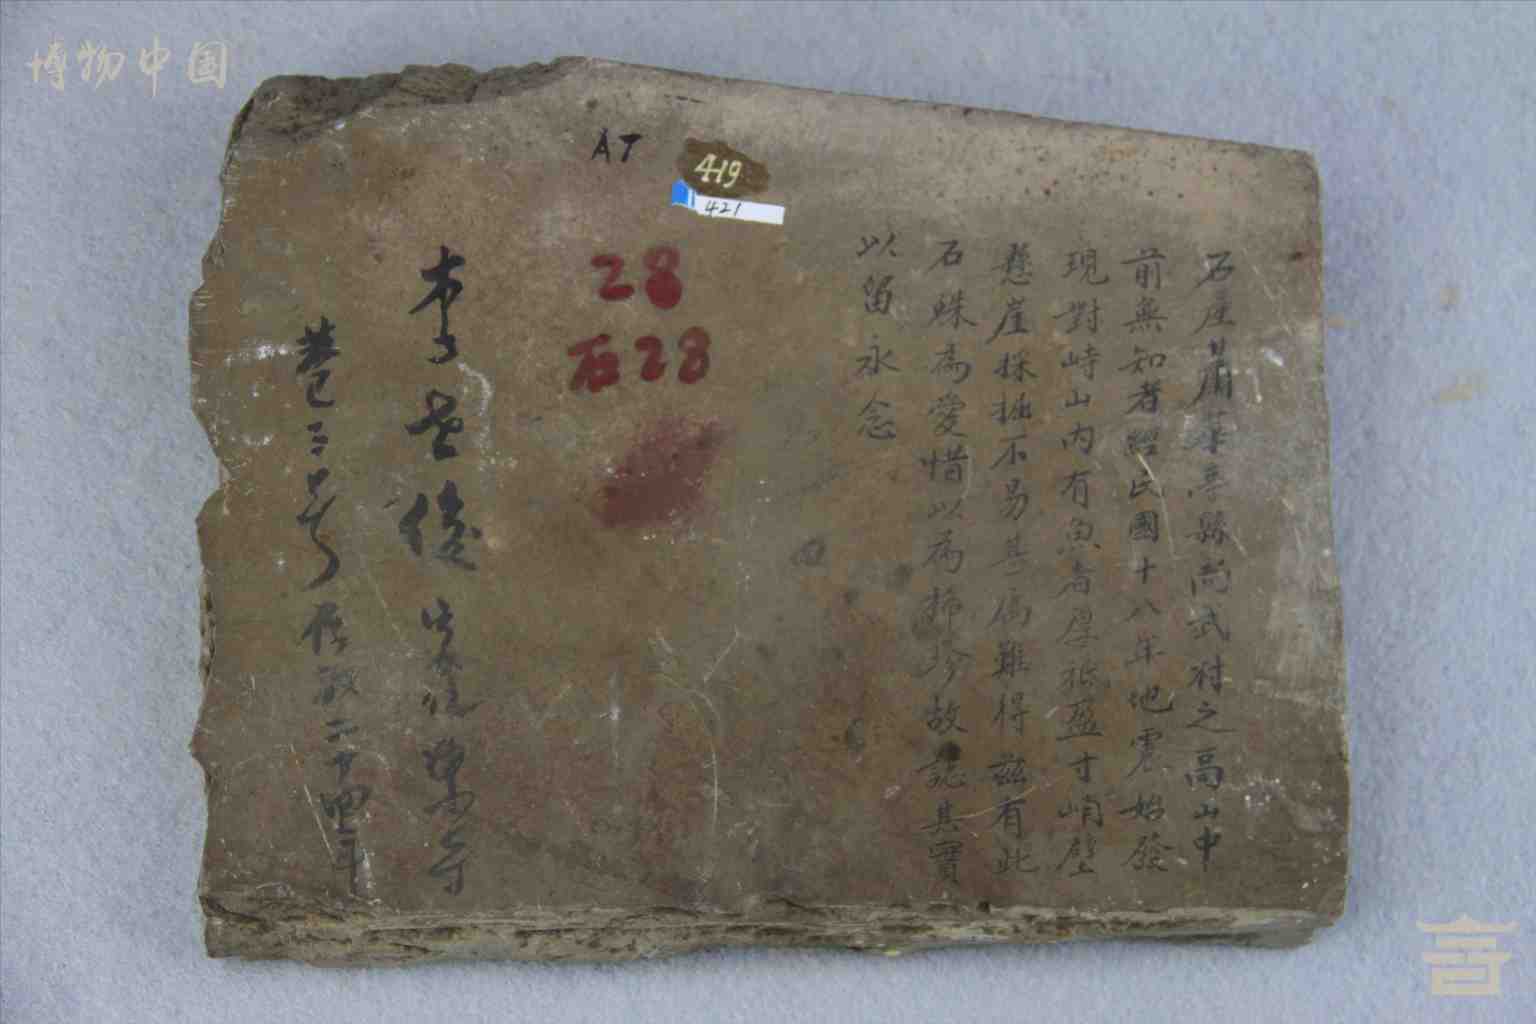 博物中国
AT
419
421
28
石28
石產甘肅華亭縣尚武村之高山中
前無知者經民國十八年地震始發
現對峙山内有魚者厚祗盈寸峭壁
懸崖採掘不易甚為難得茲有此
石殊為愛惜以為稀珍故誌其寶
以留永念
李 俊
巷三號 二十四年